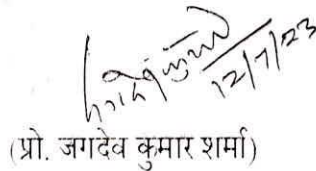 12/7/23
(प्रो. जगदेव कुमार शर्मा)